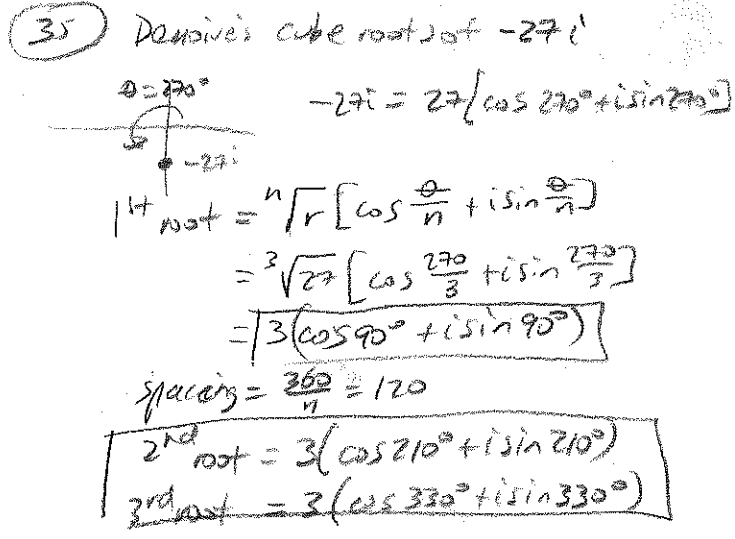 35 DeMoivre's cube roots of -27i
θ = 270°
-27i = 27[cos 270° + i sin 270°]
-27i
1st root = ⁿ√r [cos θ/n + i sin θ/n]
= ³√27 [cos 270/3 + i sin 270/3]
= 3(cos 90° + i sin 90°)
spacing = 360/n = 120
2nd root = 3(cos 210° + i sin 210°)
3rd root = 3(cos 330° + i sin 330°)